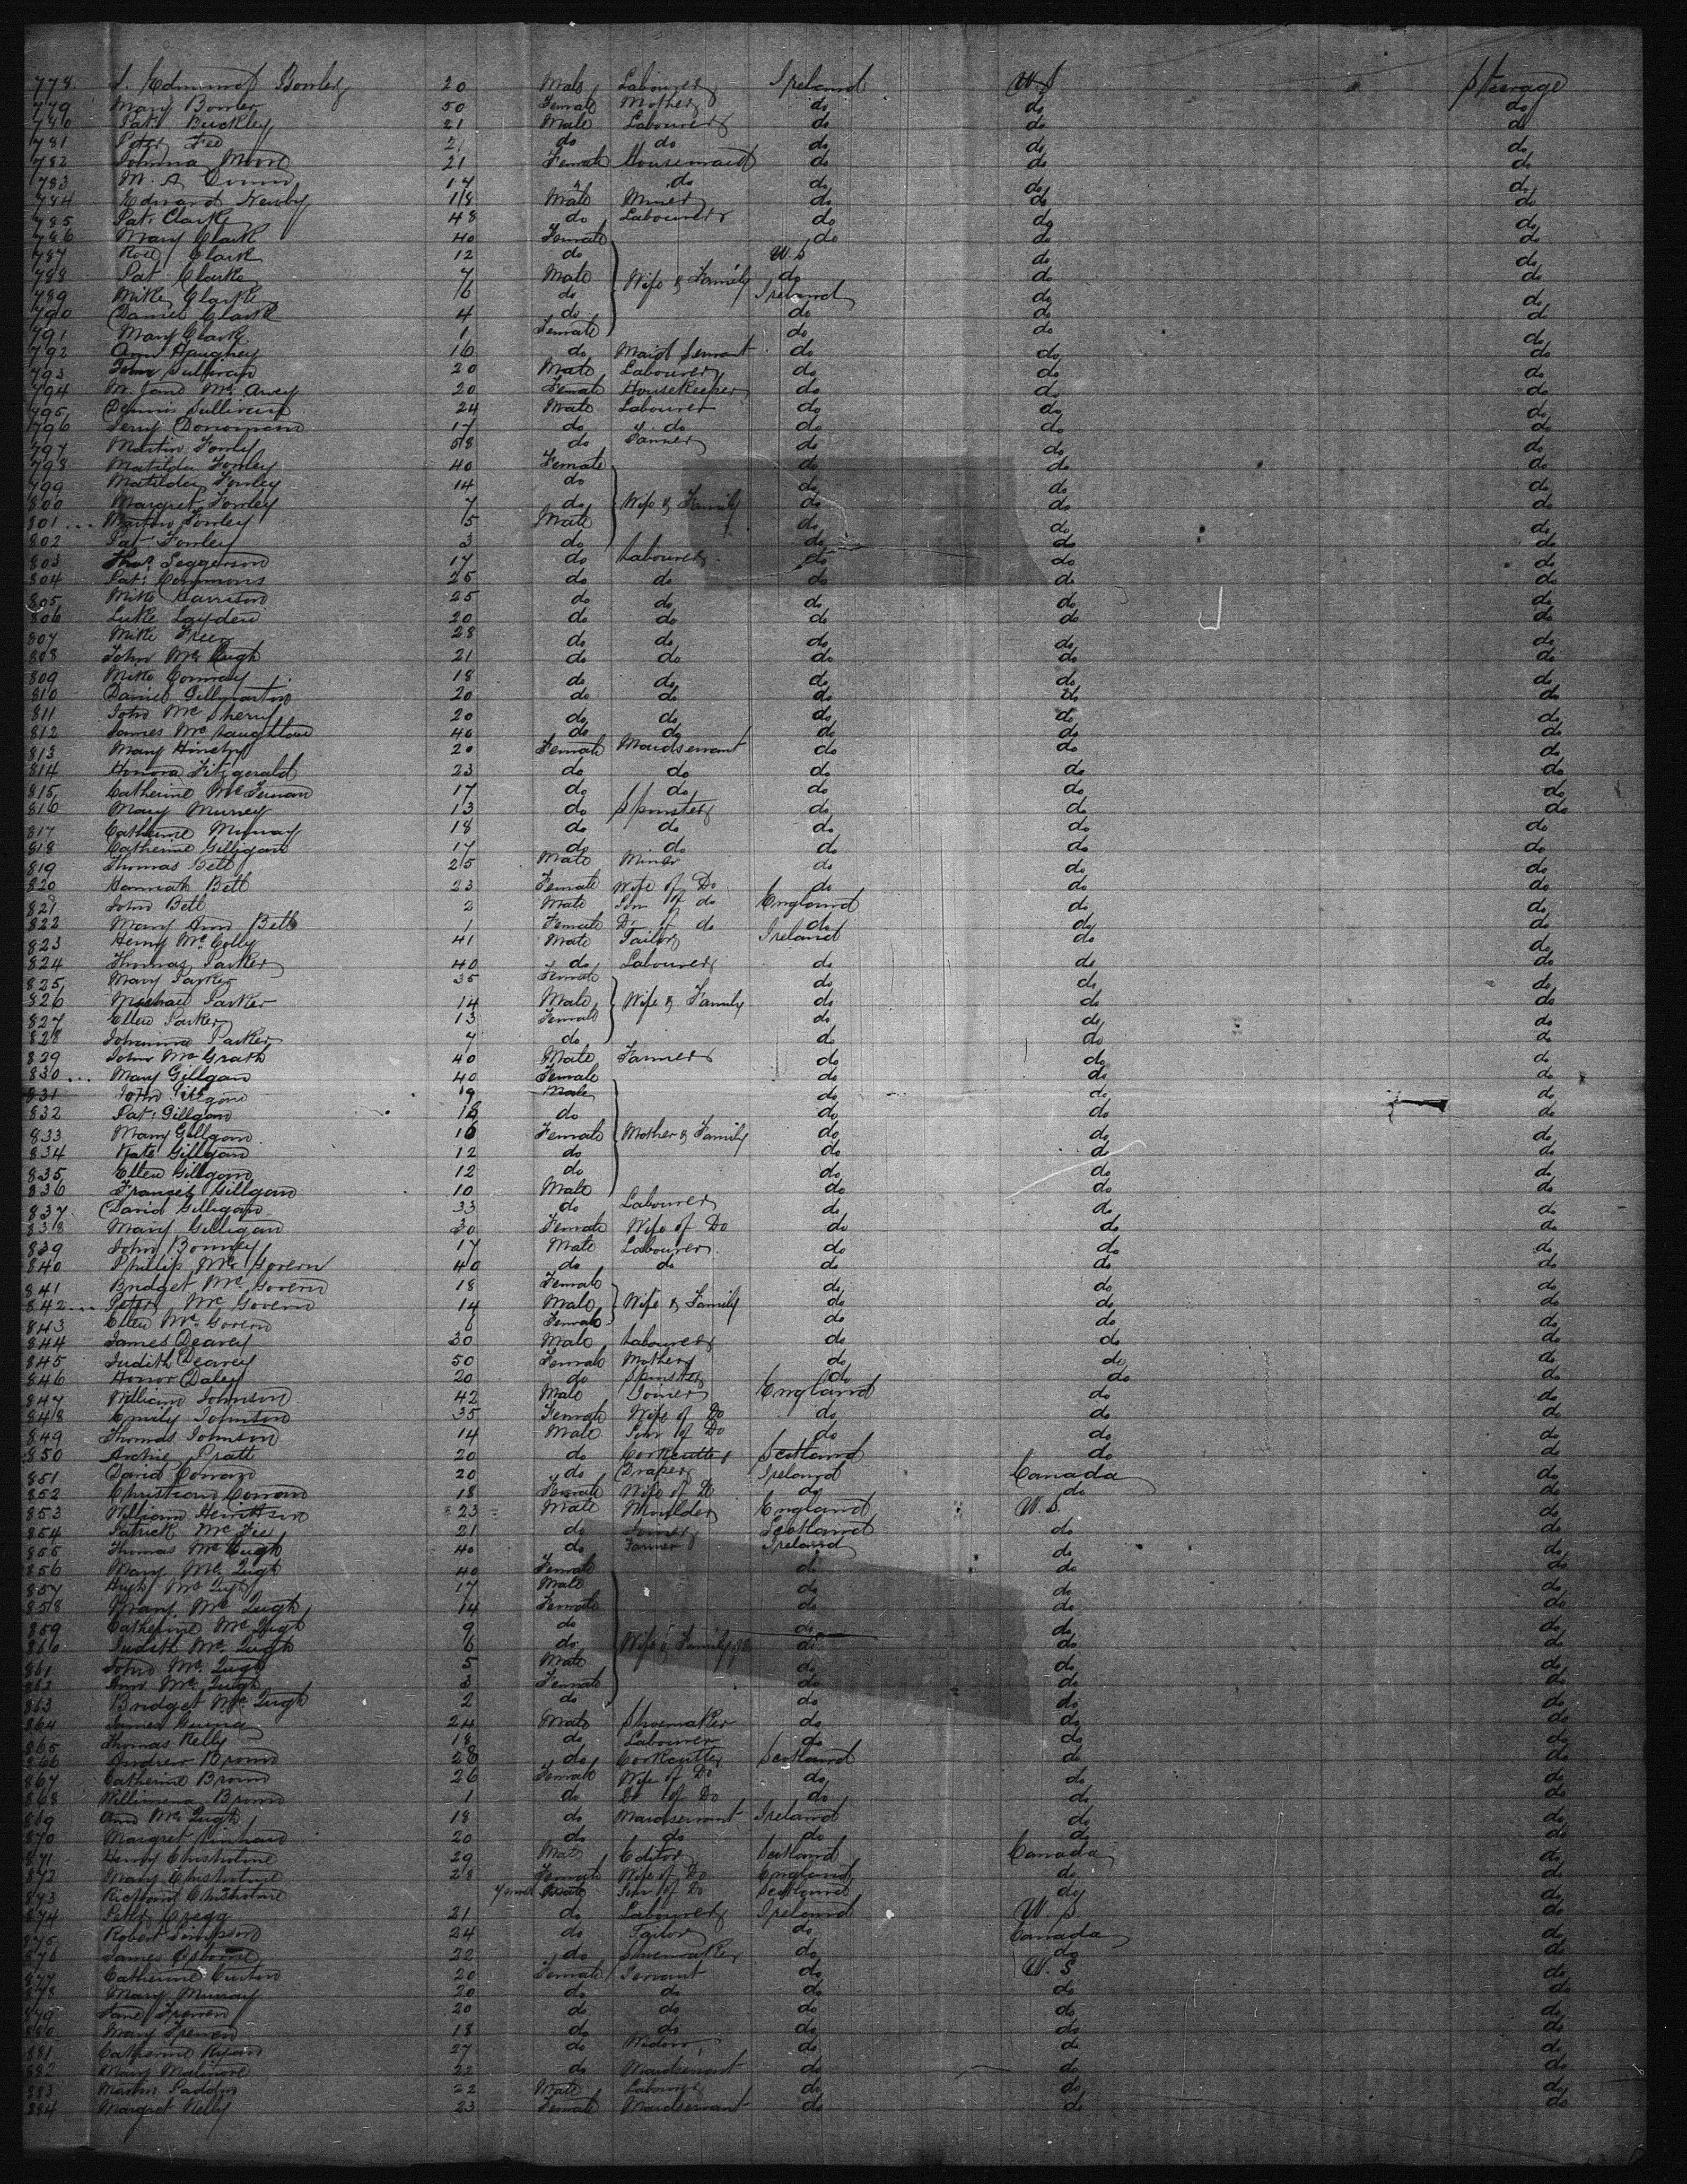 778. S. Edmund Bowler 20 Male Labourer Ireland U.S Steerage
779 Mary Bowler 50 Female Mother do do do
780 Pat: Buckley 21 Male Labourer do do do
781 Peter Fee 21 do do do do do
782 Johnna Moore 21 Female Housemaid do do do
783 M. A 17 " do do do do
784 Edward Newby 18 Male Miner do do do
785 Pat: Clarke 48 do Labourer do do do
786 Mary Clark 40 Female do do do
787 Rose Clark 12 do U.S do do
788 Pat: Clarke 7 Male Wife & Family do do do
789 Mike Clarke 6 do Ireland do do
790 Daniel Clark 4 do do do do
791 Mary Clark. 1 Female do do do
792 Ann Haughey 16 do Maid Servant do do do
793 Sullivan 20 Male Labourer do do do
794 M. Jane Mc 20 Female Housekeeper do do do
795 Dennis Sullivan 24 Male Labourer do do do
796 Jerry 17 do do do do do
797 Martin Fowley 58 do Farmer do do do
798 Matilda Fowley 40 Female do do do
799 Matilda Fowley 14 do do do do
800 Margret Fowley 7 do Wife & Family do do do
801 ... Martin Fowley 5 Male do do do
802 Pat Fowley 3 do do do do
803 Thos. Seggerson 17 do Labourer do do do
804 Pat: Commons 25 do do do do do
805 Mike Harrison 25 do do do do do
806 Luke Layden 20 do do do do do
807 Mike 28 do do do do do
808 John Mc Hugh 21 do do do do do
809 Mike Conway 18 do do do do do
810 Daniel Gillmartin 20 do do do do do
811 John Mc Sherry 20 do do do do do
812 James Mc Laughlan 40 do do do do do
813 Mary 20 Female Maidservant do do do
814 Honora Fitzgerald 23 do do do do do
815 Catherine Mc 17 do do do do do
816 Mary Murrey 13 do Spinster do do do
817 Catherine Murray 18 do do do do do
818 Catherine Gilligan 17 do do do do do
819 Thomas Bell 25 Male Miner do do do
820 Hannah Bell 23 Female Wife of Do do do do
821 John Bell 2 Male Son of do England do do
822 Mary Ann Bell 1 Female Dr of do do do do
823 Henry Mc Colly 41 Male Tailor Ireland do do
824 Thomas Parker 40 do Labourer do do do
825 Mary Parker 35 Female do do do
826 Michael Parker 14 Male Wife & Family do do do
827 Ellen Parker 13 Female do do do
828 Johanna Parker 7 do do do do
829 John Mc Grath 40 Male Farmer do do do
830 ... Mary Gillgan 40 Female do do do
831 John Gillgan 19 Male do do do
832 Pat: Gillgan 18 do do do do
833 Mary Gillgan 16 Female Mother & Family do do do
834 Kate Gillgan 12 do do do do
835 Ellen Gillgan 12 do do do do
836 Francis Gillgan 10 Male do do do
837 David Gilligan 33 do Labourer do do do
838 Mary Gilligan 30 Female Wife of Do do do do
839 John Bonney 17 Male Labourer do do do
840 Phillip Mc Govern 40 do do do do do
841 Bridget Mc Govern 18 Female do do do
842 ... Peter Mc Govern 14 Male Wife & Family do do do
843 Ellen Mc Govern Female do do do
844 James Deavey 30 Male Labourer do do do
845 Judith Deavey 50 Female Mother do do do
846 Honor Daley 20 do Spinster do do do
847 William Johnson 42 Male Joiner England do do
848 Emily Johnson 35 Female Wife of Do do do do
849 Thomas Johnson 14 Male Son of Do do do do
850 Archie Pratt 20 do Corkcutter Scotland do do
851 David Conran 20 do Draper Ireland Canada do
852 Christian Conran 18 Female Wife of Do do do do
853 William 23 Male Moulder England U.S. do
854 Patrick Mc Fee 21 do Joiner Scotland do do
855 Thomas Mc Hugh 40 do Farmer Ireland do do
856 Mary Mc Hugh 40 Female do do do
857 Hugh Mc Hugh 17 Male do do do
858 Mary Mc Hugh 14 Female do do do
859 Catherine Mc Hugh 9 do do do do
860 Judith Mc Hugh 6 do Wife & Family of Do do do do
861 John Mc Hugh 5 Male do do do
862 Ann Mc Hugh 3 Female do do do
863 Bridget Mc Hugh 2 do do do do
864 James 24 Male Shoemaker do do do
865 Thomas Kelly 18 do Labourer do do do
866 Andrew Brown 28 do Corkcutter Scotland do do
867 Catherine Brown 26 Female Wife of Do do do do
868 Willimena Brown 1 do Do of Do do do do
869 Ann Mc Hugh 18 do Maidservant Ireland do do
870 Margret 20 do do do do do
871 Henry Chisholme 29 Male Editor Scotland Canada do
872 Mary Chisholme 28 Female Wife of Do England do do
873 Richard Chisholme Male Son of Do Scotland do do
874 Peter Gregg 21 do Labourer Ireland U.S do
875 Robert Simpson 24 do Tailor do Canada do
876 James Osborne 22 do Shoemaker do do do
877 Catherine Curton 20 Female Servant do U.S do
878 Mary Murray 20 do do do do do
879 Jane 20 do do do do do
880 Mary 18 do do do do do
881 Catherine Ryan 27 do Widow do do do
882 Mary 22 do Maidservant do do do
883 Martin 22 Male Labourer do do do
884 Margret Kelly 23 Female Maidservant do do do